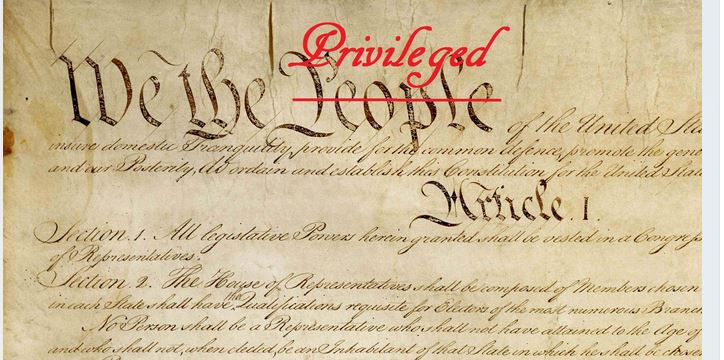 Privileged
We the People of the United Sta
insure domestic Tranquility, provide for the common defence, promote the gene
and our Posterity, do ordain and establish this Constitution for the United State
Article. I.
Section. 1. All legislative Powers herein granted shall be vested in a Congres
of Representatives.
Section. 2. The House of Representatives shall be composed of Members chosen
in each State shall have the Qualifications requisite for Electors of the most numerous Branch
No Person shall be a Representative who shall not have attained to the Age of
and who shall not, when elected, be an Inhabitant of that State in which he shall be chosen